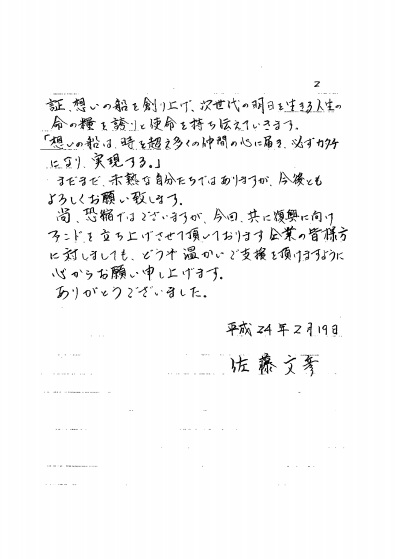 2
証、想いの船を創り上げ、次世代の明日を生きる人生の
命の糧を誇りと使命を持ち伝えていきます。
「想いの船は、時を超え多くの仲間の心に届き、必ずカタチ
になり、実現する。」
まだまだ、未熟な自分たちではありますが、今後とも
よろしくお願い致します。
尚、恐縮ではございますが、今回、共に復興に向け
ファンドを立ち上げさせて頂いております企業の皆様方
に対しましても、どうぞ温かいご支援を頂けますように
心からお願い申し上げます。
ありがとうございました。
平成24年2月19日
佐藤文彦